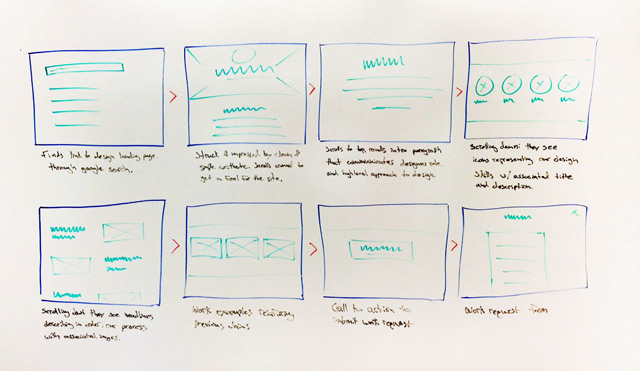 Finds link to design landing page
through google search.
Struck & impressed by clean &
simple aesthetic. Scrolls around to
get a feel for the site.
Scrolls to top, reads intro paragraph
that communicates designers role
and high level approach to design.
Scrolling down: they see
icons representing our design
skills w/ associated title
and description.
Scrolling down they see headlines
describing in order, our process
with associated images.
Work examples featuring
previous
Call to action to
submit work request
Work request form